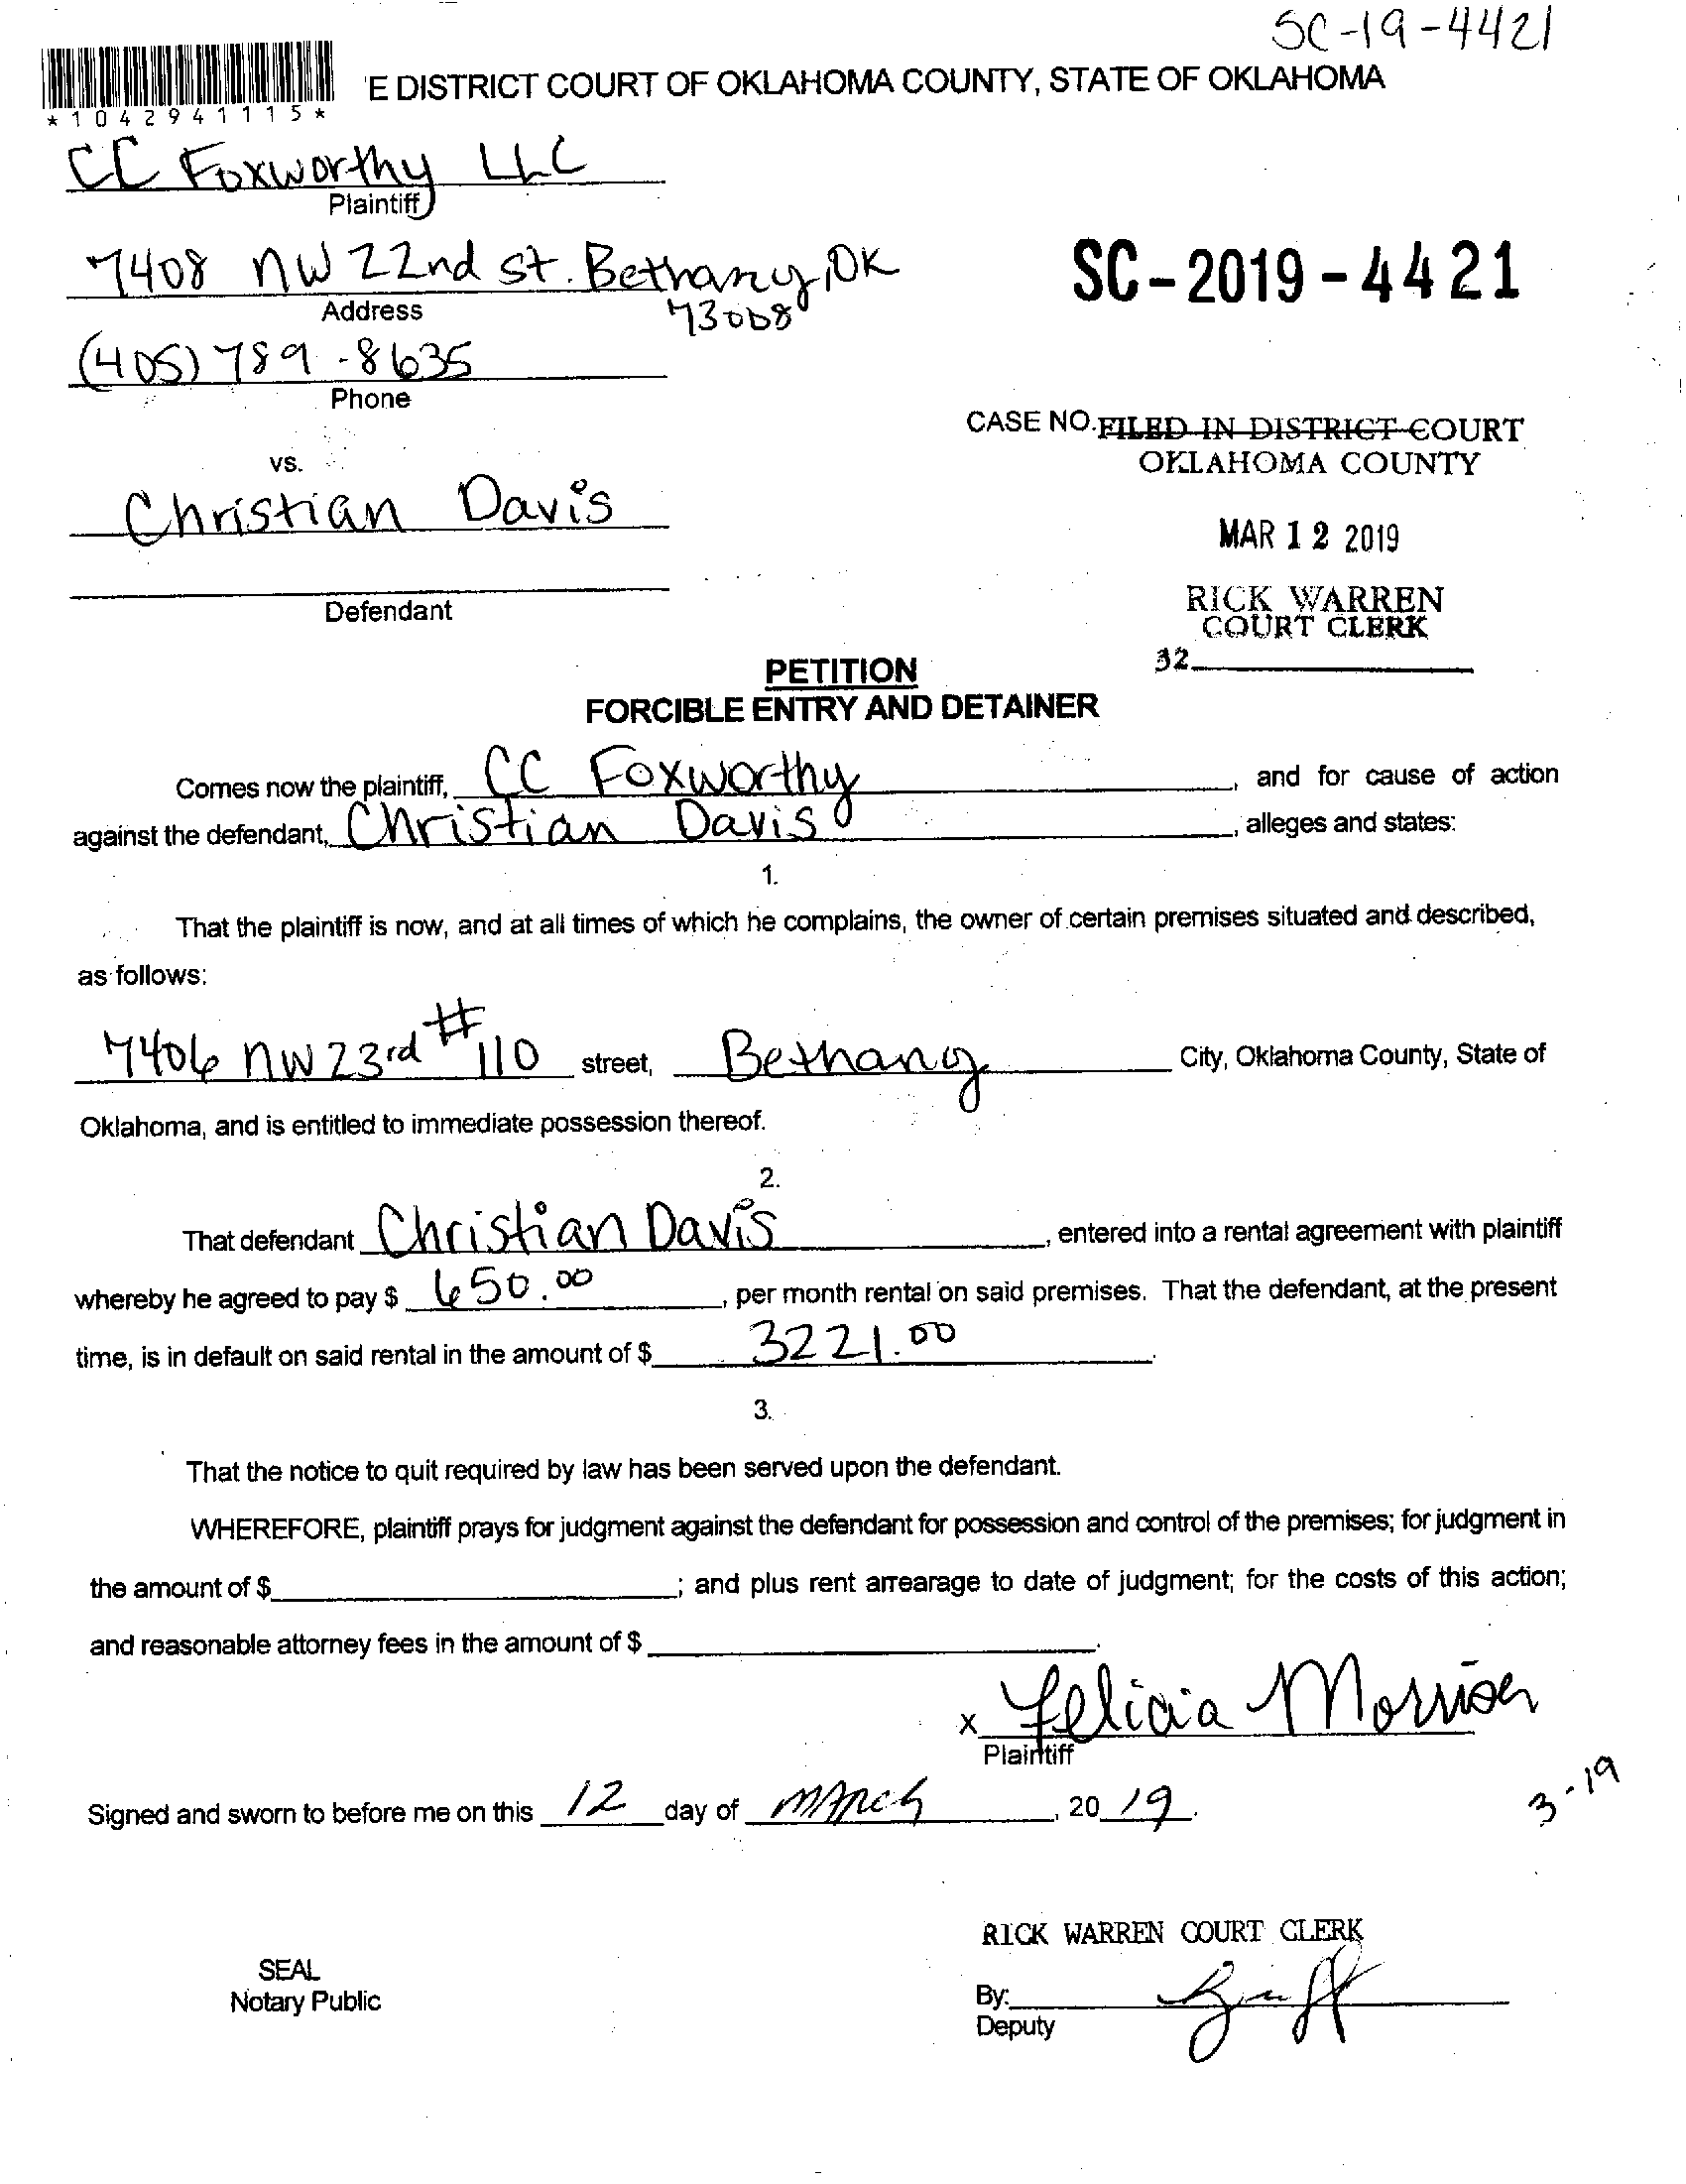 SC-19-4421
'E DISTRICT COURT OF OKLAHOMA COUNTY, STATE OF OKLAHOMA
*1042941115*
CC Foxworthy LLC
Plaintiff
7408 NW 22nd St. Bethany, OK
73008
Address
SC-2019-4421
(405) 789-8635
Phone
CASE NO. FILED IN DISTRICT COURT
OKLAHOMA COUNTY
vs.
Christian Davis
MAR 12 2019
Defendant
RICK WARREN
COURT CLERK
32
PETITION
FORCIBLE ENTRY AND DETAINER
Comes now the plaintiff, CC Foxworthy, and for cause of action
against the defendant, Christian Davis, alleges and states:
1.
That the plaintiff is now, and at all times of which he complains, the owner of certain premises situated and described,
as follows:
7406 NW 23rd #110 street, Bethany City, Oklahoma County, State of
Oklahoma, and is entitled to immediate possession thereof.
2.
That defendant Christian Davis, entered into a rental agreement with plaintiff
whereby he agreed to pay $ 650.00, per month rental on said premises. That the defendant, at the present
time, is in default on said rental in the amount of $ 3221.00.
3.
That the notice to quit required by law has been served upon the defendant.
WHEREFORE, plaintiff prays for judgment against the defendant for possession and control of the premises; for judgment in
the amount of $ ; and plus rent arrearage to date of judgment; for the costs of this action;
and reasonable attorney fees in the amount of $ .
x Felicia Morrison
Plaintiff
Signed and sworn to before me on this 12 day of March, 20 19.
3-19
RICK WARREN COURT CLERK
SEAL
Notary Public
By:
Deputy